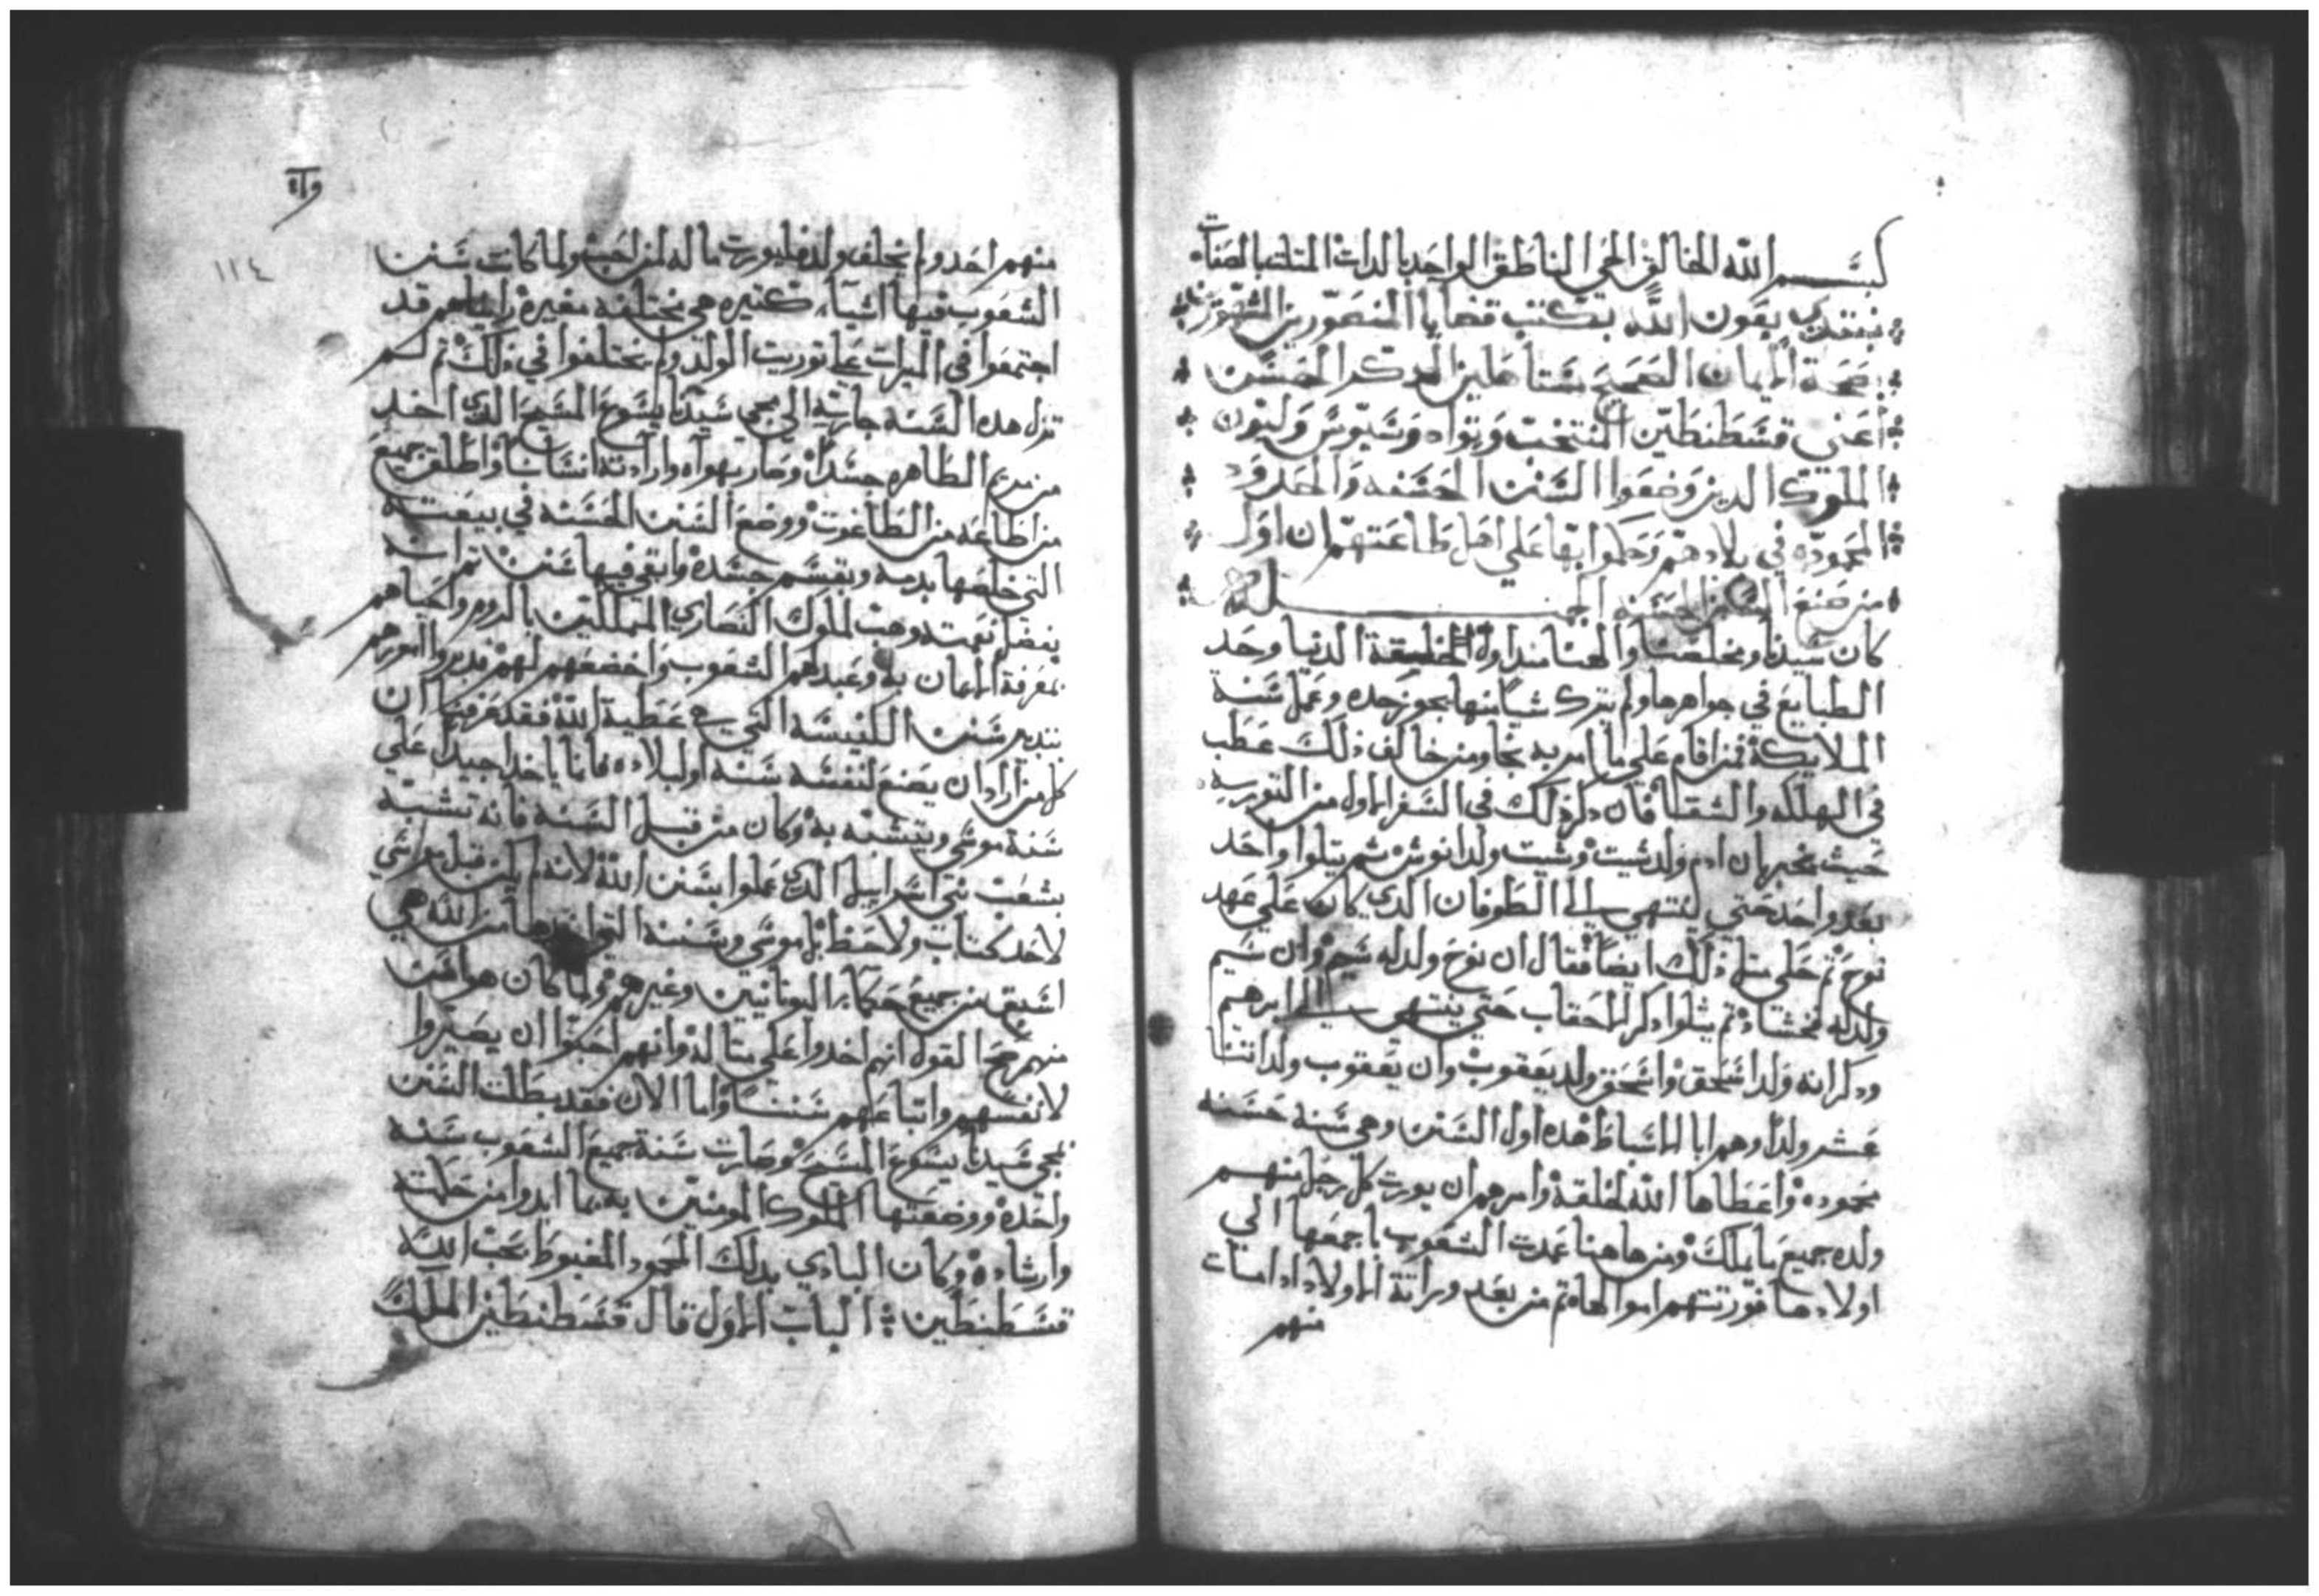 بسم الله الخالق الحي الناطق الواحد بالدات المتلت بالصفات
نبتدي بعون الله بكتب قضايا المنصورين
صحة الايمان الصحيح الدكر الحسن
اعني قسطنطين المنتخب وتواد وسيوس وليون
الملوك الدين وضعوا السنن الحسنه والحدود
المحموده في بلادهم وحكموا بها علي اهل طاعتهم ان اول
من صنع السنن الحسنه
كان سيدنا ومخلصنا والهنا مند اول الخليقة الدنيا وحد
الطبايع في جواهرها ولم يترك شيا منها يجوز حده وعمل سنة
الملايكة فمن اقام علي ما امر به نجا ومن خالف ذلك عطب
في الهلكه والشقا فان دكر ذلك في السفر الاول من التوريه
حيث يخبر ان ادم ولد شيت وشيت ولد انوش ثم يتلوا واحد
بعد واحد حتي ينتهي الي الطوفان الدي كان علي عهد
نوح ثم حكي مثل ذلك ايضا فقال ان نوح ولد له شيم وان شيم
ولد له فخشاد ثم يتلوا دكر الاحقاب حتي ينتهي الي ابرهيم
ودكر انه ولد اسحق واسحق ولد يعقوب وان يعقوب ولد اتنا
عشر ولدا وهم ابا الاسباط هده اول السنن وهي سنة حسنه
محموده واعطاها الله لخلقه وامرهم ان يورت كل رجل منهم
ولده جميع ما يملك ومن هاهنا عمدت الشعوب باجمعها الي
اولادها فورتتهم اموالها تم من بعد وراتة الاولاد ادا مات
منهم
وااه
١١٤
منهم احد ولم يخلف ولد فليورت ماله لمن احب ولما كانت سنن
الشعوب فيها اشيآء كتيره هي مختلفه متغيره رايناهم قد
اجتمعوا في الميرات علي توريت الولد ولم يختلفوا في ذلك تم لم
تزل هده السنه جاريه الي مجي سيدنا يسوع المسيح الدي اخد
من مريم الطاهره جسدا وصار بهواه وارادته انسانا واطلق جميع
من اطاعه من الطاغوت ووضع السنن الحسنه في بيعته
التي خلصها بدمه وبقسم جسده وابقي فيها سنن تم انه
بفضل نعمته وهب لملوك النصاري المتملكين بالروم واحباهم
بمعرفة الايمان به وعبد لهم الشعوب واخضعهم لهم
بتدبير سنن الكنيسه التي هي عطية الله فقد عرفنا ان
كل من اراد ان يصنع لنفسه سنه او لبلاده فانما ياخد اخيدا علي
سنة موسي ويتشبه به وكان من قبل السنه فانه تشبه
بشعب بني اسراييل الدي عملوا بسنن الله لانه لم يكن قبل
لاحد كتاب ولا حفظ بل موسي وسننه التي اخدها من الله هي
اسبق من جميع حكمآء اليونانيين وغيرهم ولما كان هوافت
منهم صح القول انهم اخدوا علي متاله وانهم احبوا ان يصيروا
لانفسهم واتباعهم سننا واما الان فقد بطلت السنن
لمجي سيدنا يسوع المسيح وصارت سنة جميع الشعوب سنه
واحده ووضعتها الملوك المومنين به بما ابدوا من حكمته
وارشاده وكان البادي بدلك المحمود المغبوط محب الله
قسطنطين الباب الاول قال قسطنطين الملك